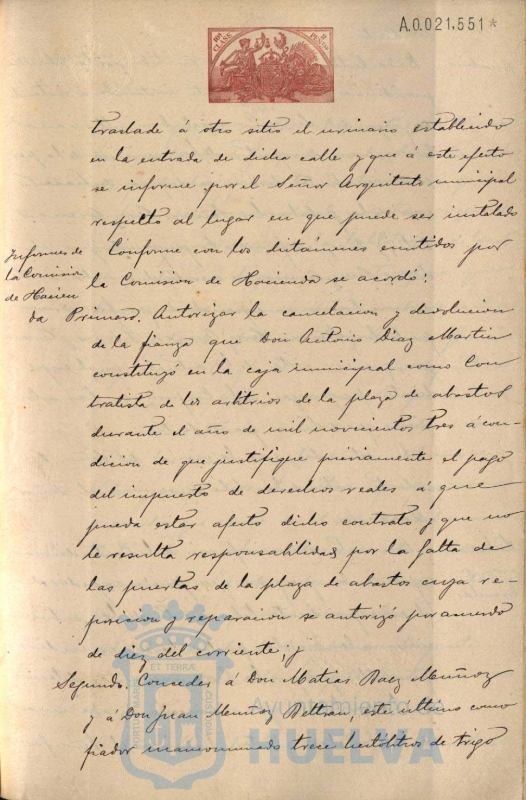 A.0.021,551*
10ª CLASE
traslade á otro sitio el urinario establecido
en la entrada de dicha calle y que á este efecto
se informe por el Señor Arquitecto municipal
respecto al lugar en que puede ser instalado
Informes de
la Comision
de Hacien
da
Conforme con los dictámenes emitidos por
la Comision de Hacienda se acordó:
Primero. Autorizar la cancelacion y devolucion
de la fianza que Don Antonio Diaz Martin
constituyó en la caja municipal como Con
tratista de los arbitrios de la plaza de abastos
durante el año de mil novecientos tres á con-
dicion de que justifique préviamente el pago
del impuesto de derechos reales á que
pueda estar afecto dicho contrato y que no
le resulta responsabilidad por la falta de
las puertas de la plaza de abastos cuya re-
posicion y reparacion se autorizó por acuerdo
de diez del corriente; y
Segundo. Conceder á Don Matias Baez Muñoz
y á Don Juan Muñoz Beltran, este ultimo como
fiador mancomunado trece hectólitros de trigo
ET TERRÆ
PORTUS MARIS
CUSTODIA
Ayuntamiento de
HUELVA